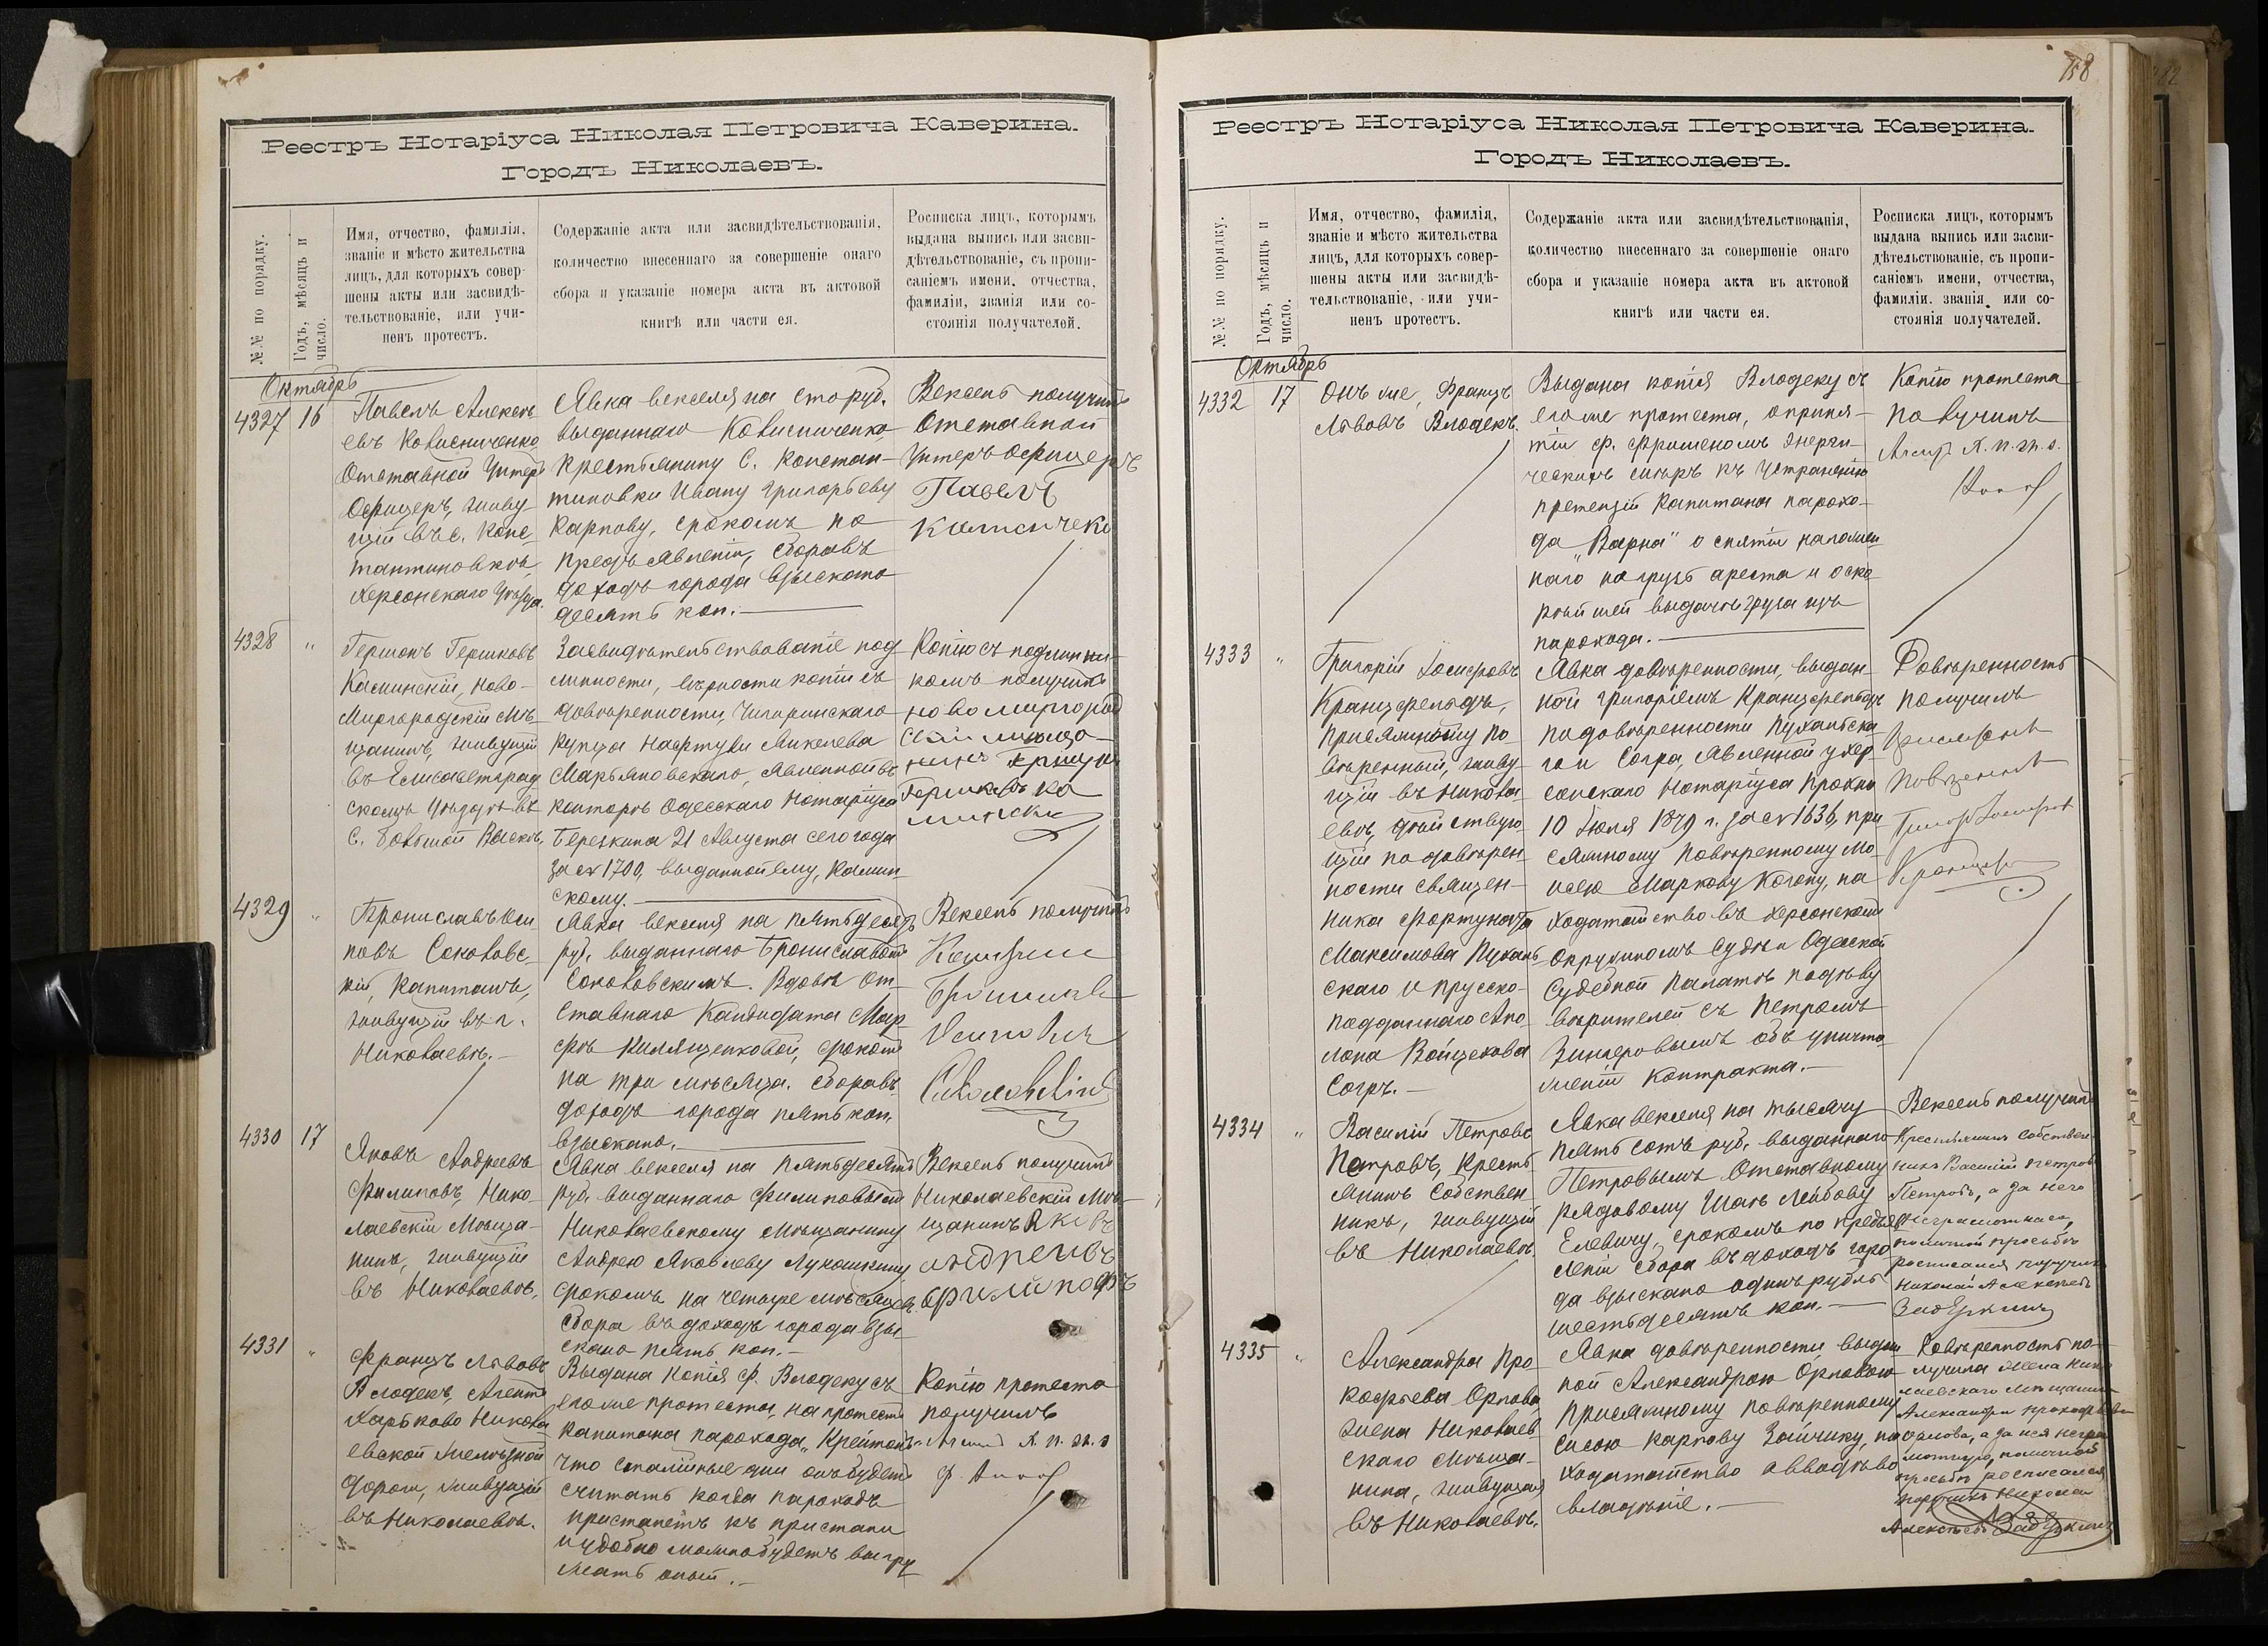 Реестръ Нотаріуса Николая Петровича Каверина.
Городъ Николаевъ.
№№ по порядку.
Годъ, мѣсяцъ и
число.
Имя, отчество, фамилія,
званіе и мѣсто жительства
лицъ, для которыхъ совер-
шены акты или засвидѣ-
тельствованіе, или учи-
ненъ протестъ.
Содержаніе акта или засвидѣтельствованія,
количество внесеннаго за совершеніе онаго
сбора и указаніе номера акта въ актовой
книгѣ или части ея.
Росписка лицъ, которымъ
выдана выпись или засви-
дѣтельствованіе, съ пропи-
саніемъ имени, отчества,
фамиліи, званія или со-
стоянія получателей.
Октябрь
4327 16
Павелъ Алексѣ
евъ Колисниченко
Отставной Унтеръ
Офицеръ, живу
щій въ с. Конс-
тантиновкѣ,
Херсонскаго Уѣзда.
Явка векселя на сто руб.
выданнаго Колисниченко,
Крестьянину С. Констан-
тиновки Ивану Григорьеву
Карпову, срокомъ по
предъявленіи, сборавъ
доходъ города взыскано
десять коп.
Вексель получилъ
Отставной
Унтеръ Офицеръ
Павелъ
4328 "
Гершонъ Гершковъ
Каминскій, Ново-
Миргородскій Мѣ-
щанинъ, живущій
въ Елисаветград
скомъ Уѣздѣ въ
С. Большой Выскѣ.
Засвидѣтельствованіе под
линности, вѣрности копіи съ
довѣренности, Чигиринскаго
купца Нафтулы Микелева
Марьяновскаго, явленной въ
конторѣ Одесскаго Нотаріуса
Березкина 21 Августа сего года
за № 1700, выданной ему, Камин
скому.
Копію съ подлинни-
комъ получилъ
новомиргород
4329 "
Брониславъ Оси
повъ Соколовс-
кій, Капитанъ,
живущій въ г.
Николаевѣ.-
Явка векселя на пятьдесятъ
руб. выданнаго Брониславомъ
Соколовскимъ. Вдовѣ От-
ставнаго Кандидата Мар
фѣ Киллященковой, срокомъ
на три мѣсяца. Сборавъ
доходъ города пять коп.
взыскано.
Вексель получилъ
4330 17
Яковъ Андреевъ
Филиповъ, Нико-
лаевскій Мѣща-
нинъ, живущій
въ Николаевѣ.
Явка векселя на пятьдесятъ
руб. выданнаго Филиповымъ
Николаевскому Мѣщанину
Андрею Яковлеву Лукашкину
срокомъ на четыре мѣсяца.
Сбора въ доходъ города взы
скано пять коп.-
Вексель получилъ
Николаевскій Мѣ-
щанинъ Яковъ
Андреивъ
филипофъ
4331 "
Францъ Львовъ
Влодекъ, Агентъ
Харьково Никола
евской Желѣзной
дороги, живущій
въ Николаевѣ.
Выдана копія Ф. Влодеку съ
его же протеста, на протестъ
капитана парохода "Крейтонъ"
что сталійные дни онъ будетъ
считать когда пароходъ
пристанетъ къ пристани
и удобно можно будетъ выгру
жать оный.-
Копію протеста
получилъ
158
Реестръ Нотаріуса Николая Петровича Каверина.
Городъ Николаевъ.
№№ по порядку.
Годъ, мѣсяцъ и
число.
Имя, отчество, фамилія,
званіе и мѣсто жительства
лицъ, для которыхъ совер-
шены акты или засвидѣ-
тельствованіе, или учи-
ненъ протестъ.
Содержаніе акта или засвидѣтельствованія,
количество внесеннаго за совершеніе онаго
сбора и указаніе номера акта въ актовой
книгѣ или части ея.
Росписка лицъ, которымъ
выдана выпись или засви-
дѣтельствованіе, съ пропи-
саніемъ имени, отчества,
фамиліи. званія или со-
стоянія получателей.
Октябрь
4332 17
Онъ же, Францъ
Львовъ Влодекъ.
Выдана копія Влодеку съ
его же протеста, о приня-
тіи Ф. Фришеномъ энерги-
ческихъ мѣръ къ устраненію
претензій Капитана парохо-
да "Варна" о снятіи наложен
наго на грузъ ареста и оско
рѣйшей выдачѣ груза изъ
парохода.
Копію протеста
получилъ
4333 "
Григорій Іосифовъ
Кранцфельдъ,
присяжный по-
вѣренный, живу-
щій въ Никола-
евѣ, дѣйствую-
щій по довѣрен-
ности священ-
ника Фортуната
Максимова Пухаль
скаго и прусско-
подданнаго Апо
лона Войцехова
Согръ.-
Явка довѣренности, выдан-
ной Григоріемъ Кранцфельдъ
по довѣренности Пухальска
го и Согра, явленной у Хер
сонскаго Нотаріуса
10 Іюля 1879 г. за № 1636, при
сяжному повѣренному Мо-
исею Маркову Когону, на
ходатайство въ Херсонскомъ
Окружномъ Судѣ и Одесской
Судебной Палатѣ по дѣлу
вѣрителей съ Петромъ
Зингеровымъ объ уничто
женіи контракта.-
Довѣренность
получилъ
4334 "
Василій Петровъ
Петровъ, Кресть
янинъ Собствен
никъ, живущій
въ Николаевѣ.
Явка векселя на тысячу
пять сотъ руб. выданнаго
Петровымъ Отставному
рядовому Шаѣ Лейбову
Елевичу, срокомъ по предъяв
леніи Сбора въ доходъ горо
да взыскано одинъ рубль
шестьдесятъ коп.-
Вексель получилъ
Крестьянинъ Собствен
никъ Василій Петровъ
Петровъ, а за него
неграмотнаго,
по личной просьбѣ
росписался поручикъ
Николай Алексѣевъ
4335 "
Александра Про
кофьева Орлова
жена Николаев
скаго Мѣща-
нина, живущая
въ Николаевѣ.
Явка довѣренности выдан
ной Александрою Орловою
присяжному повѣренному
Карпову Зайчику, на
ходатайство о вводѣ во
владѣніе.-
Довѣренность по-
лучила жена Нико
лаевскаго Мѣщанина
Александра Прокофьева
Орлова, а за нея негра
мотную, по личной
просьбѣ росписался
поручикъ Николай
Алексѣевъ